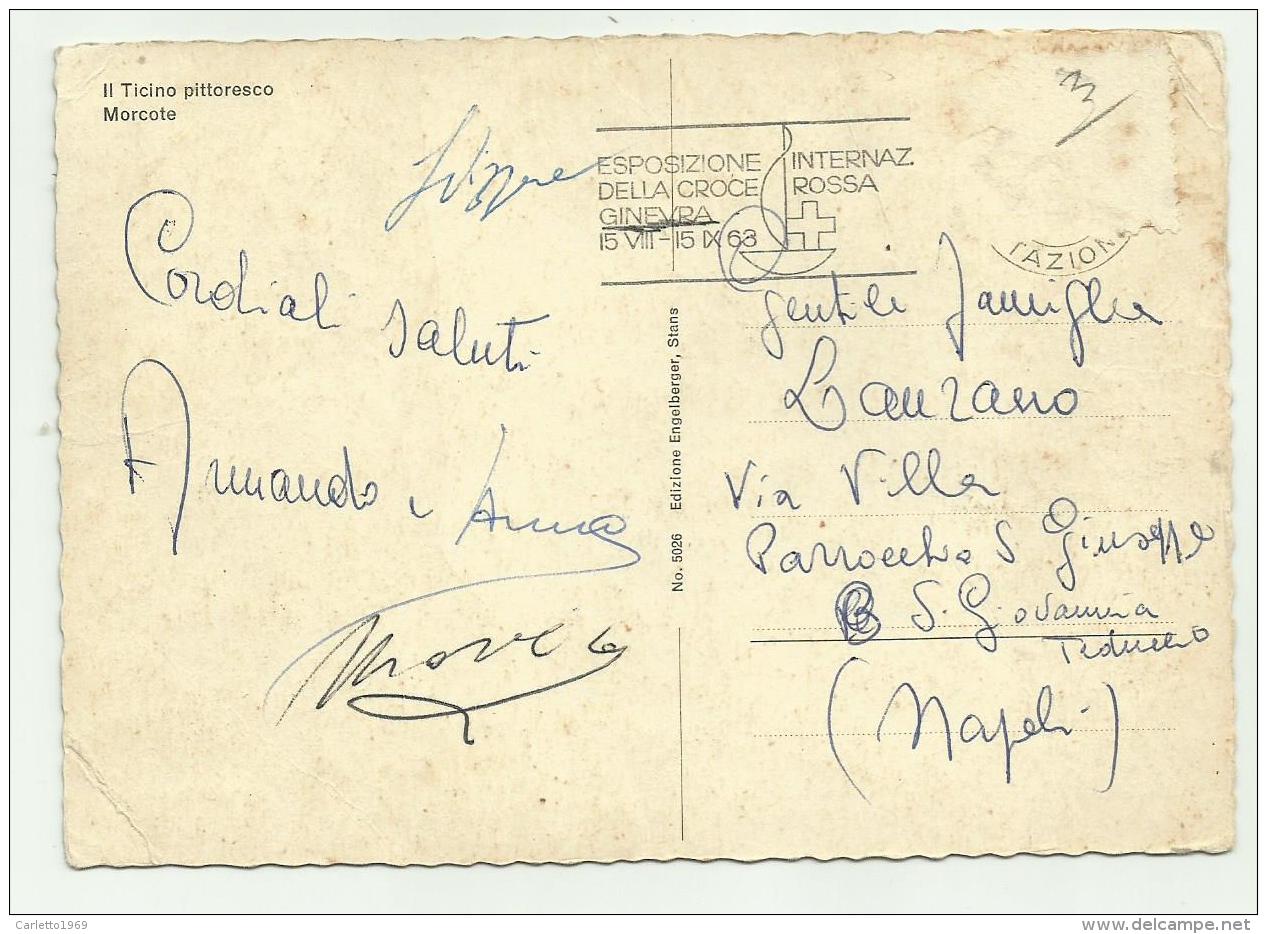 Il Ticino pittoresco
Morcote
Svizzera
Cordiali saluti
Armando e Anna
ESPOSIZIONE INTERNAZ.
DELLA CROCE ROSSA
GINEVRA
15 VIII-15 IX 63
TAZION
No. 5026 Edizione Engelberger, Stans
Gentile Famiglia
Lanzano
Via Villa
Parrocchia S Giuseppe
S. Giovanni a
Teduccio
(Napoli)
Carletto1969
www.delcampe.net